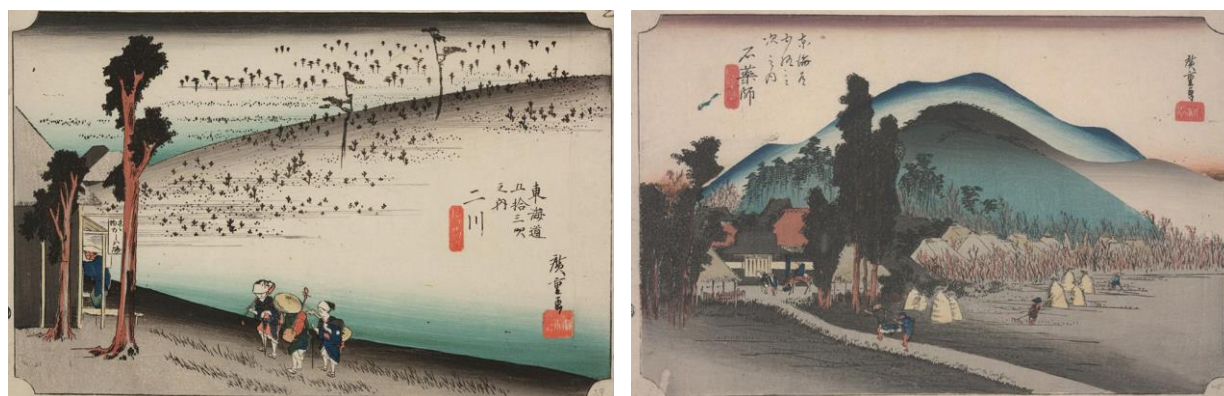 東海道
五拾三次
之内
二川
廣重画
名物かしハ餅
東海道
五拾三
次之内
石薬師
廣重画